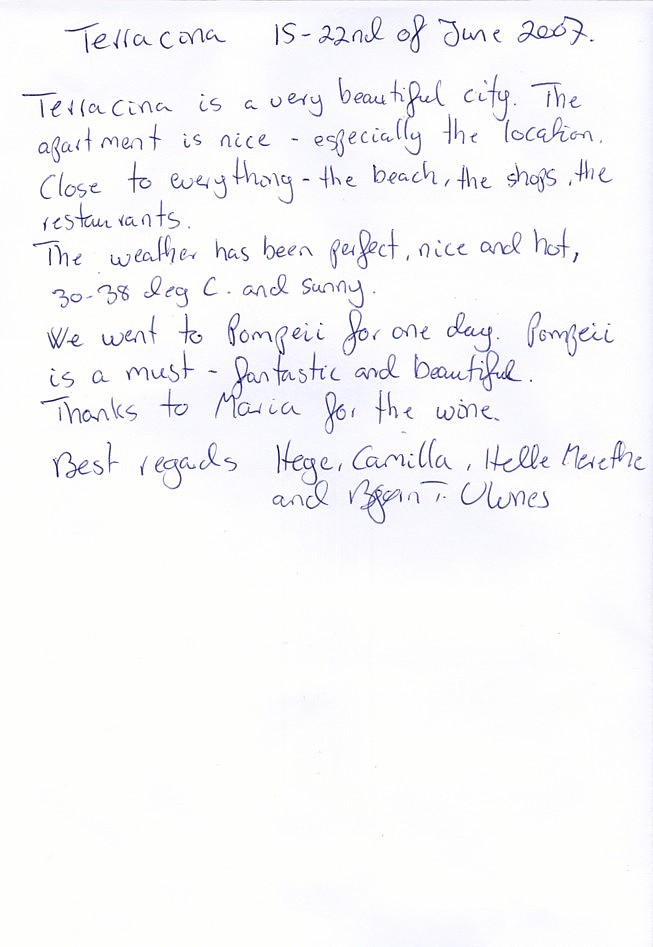 Terracona 15-22nd of June 2007.
Terracina is a very beautiful city. The
apartment is nice - especially the location.
Close to everything - the beach, the shops, the
restaurants.
The weather has been perfect, nice and hot,
30-38 deg C. and sunny.
We went to Pompeii for one day. Pompeii
is a must - fantastic and beautiful.
Thanks to Maria for the wine.
Best regads Hege, Camilla, Helle Merethe
and T. Ulvnes